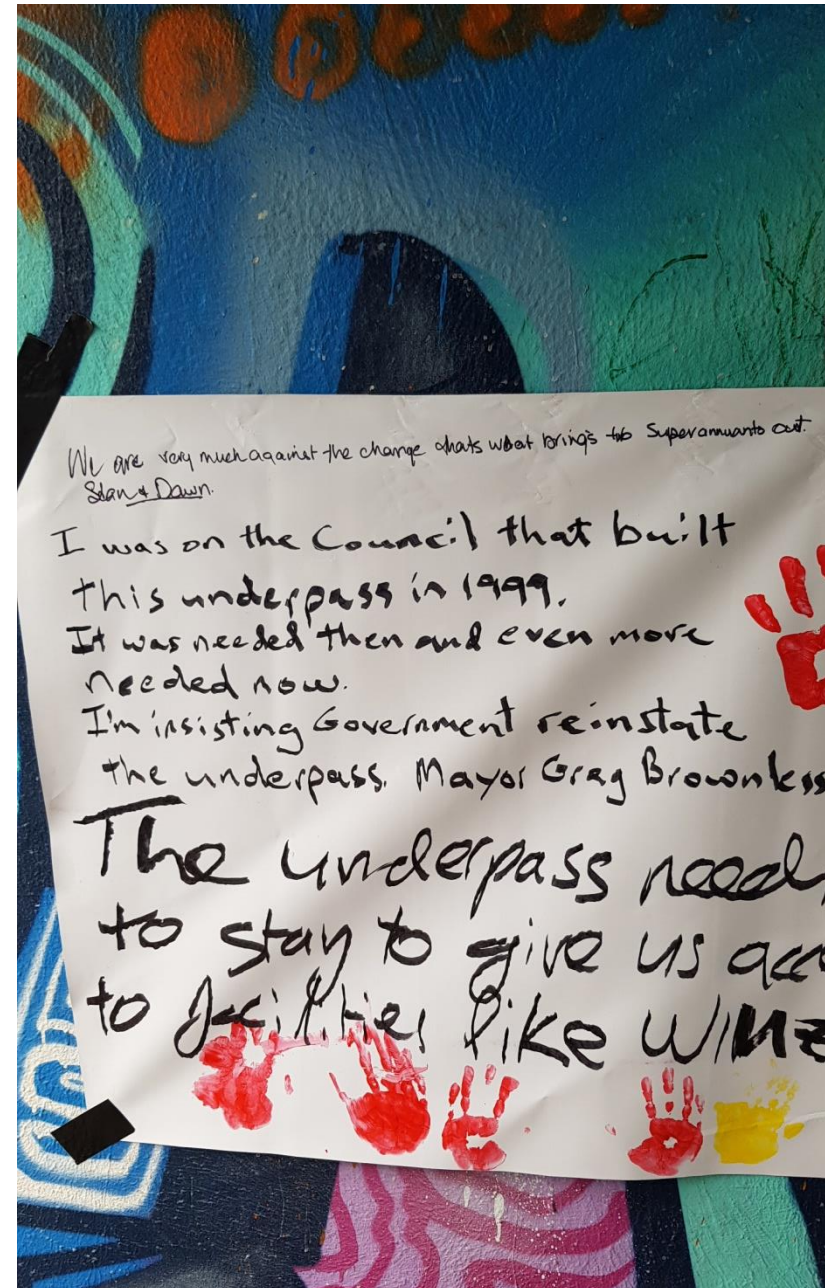 We are very much against the change thats what bring's two Superannuants out.
Stan & Dawn.
I was on the Council that built
this underpass in 1999.
It was needed then and even more
needed now.
I'm insisting Government reinstate
the underpass. Mayor Greg Brownless
The underpass needs
to stay to give us acc
to facilities like WINZ